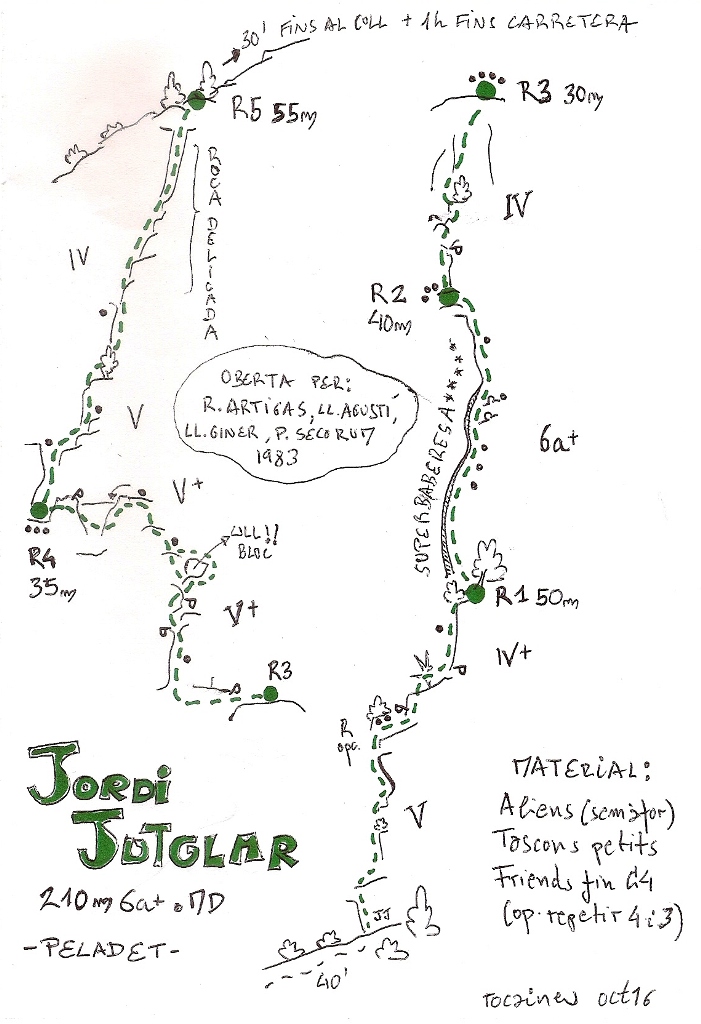 30' FINS AL COLL + 1h FINS CARRETERA
R5 55m
R3 30m
ROCA DELICADA
IV
IV
R2
40m
OBERTA PER:
R. ARTIGAS, LL. AGUSTÍ,
LL. GINER, P. SEGORUM
1983
SUPERBABERESA*****
V
6a+
V+
ULL!!
BLOC
R4
35m
V+
R1 50m
IV+
R3
R
opc.
JORDI
JUTGLAR
210m 6a+. MD
-PELADET-
V
MATERIAL:
Aliens (semàfor)
Tascons petits
Friends fin C4
(op. repetir 4 i 3)
JJ
40'
oct 16